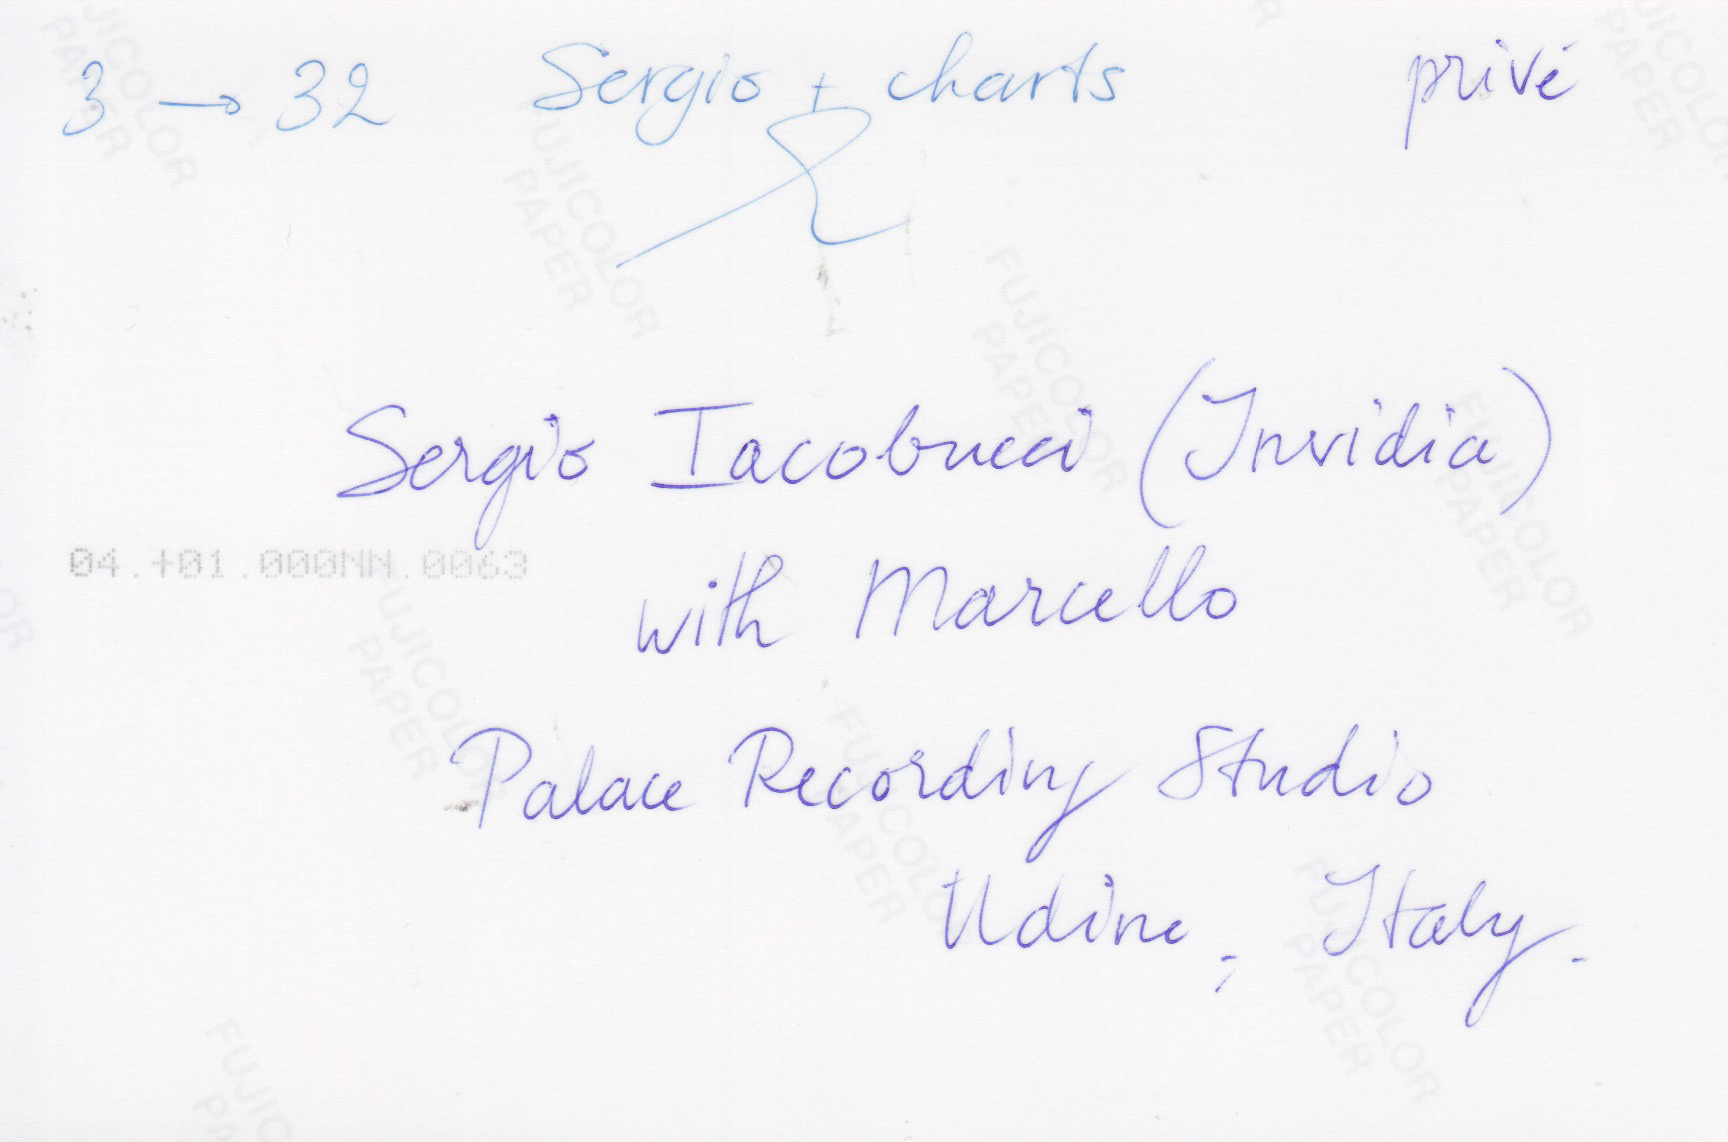 3 → 32 Sergio + charts privé
Sergio Iacobucci (Invidia)
04.+01.000NN.0063
with Marcello
Palace Recording Studio
Udine, Italy.
FUJICOLOR
PAPER